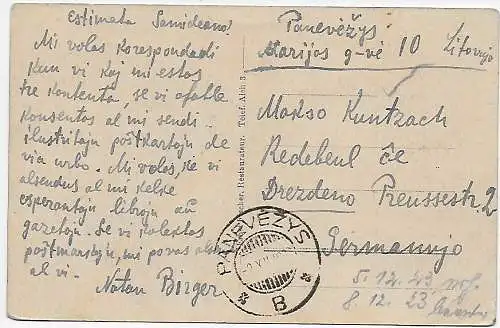 Estimata Samideano!
Mi volas korespondadi
kun vi kaj mi estos
tre kontenta, se vi afable
konsentos al mi sendi
ilustritajn poŝtkartojn de
via urbo. Mi volas, ke vi
alsendus al mi kelke
esperantajn librojn aŭ
gazetojn. Se vi kolektas
poŝtmarkojn, mi povas
al vi.
Natan Birger
Panevėžys
Marijos g-vė 10 Litovujo
Makso Kuntzach
Redebeul ĉe
Drezdeno Preussestr. 2
Germanujo
5. 12. 23
8. 12. 23
PANEVĖŽYS
B